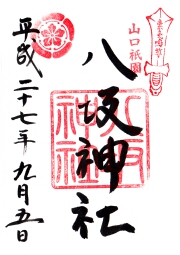 山口祇園
八坂神社
八坂
神社
平成二十七年九月五日